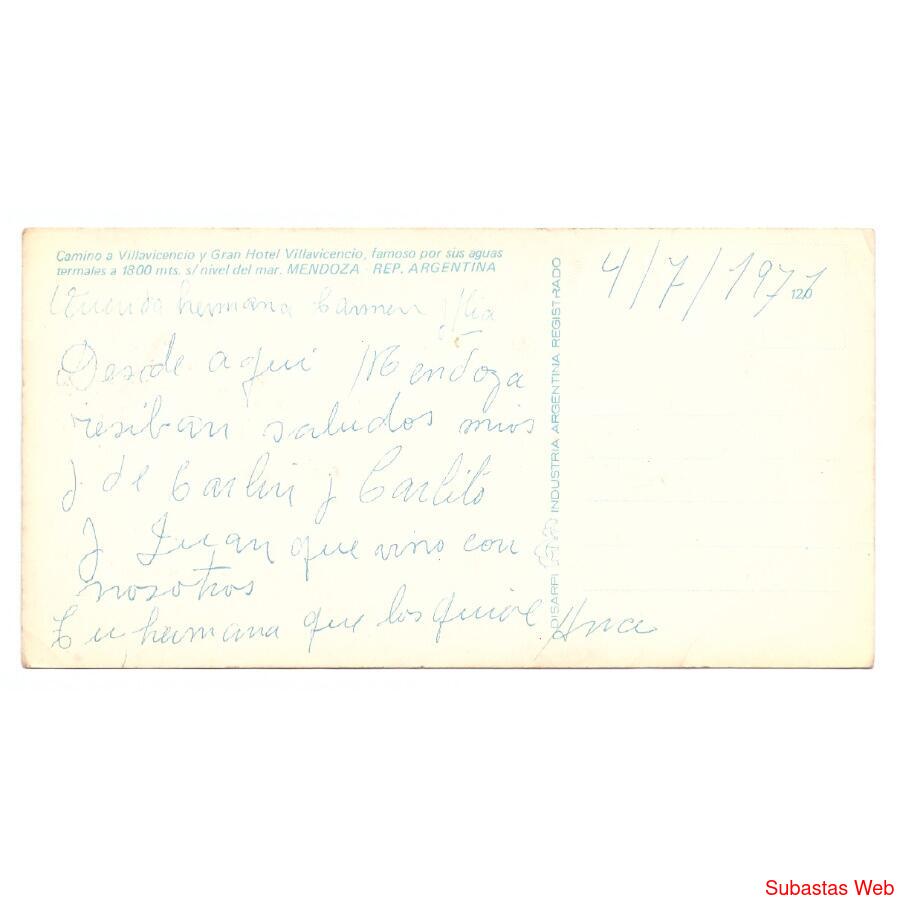 Camino a Villavicencio y Gran Hotel Villavicencio, famoso por sus aguas
termales a 1800 mts. s/nivel del mar. MENDOZA - REP. ARGENTINA
Querida hermana Carmen
Desde aqui Mendoza
resiban saludos mios
y de Carlin y Carlito
y Juan que vino con
nosotros
Tu hermana que los quiere Ana
DISARPI INDUSTRIA ARGENTINA REGISTRADO
4/7/1971
120
Subastas Web